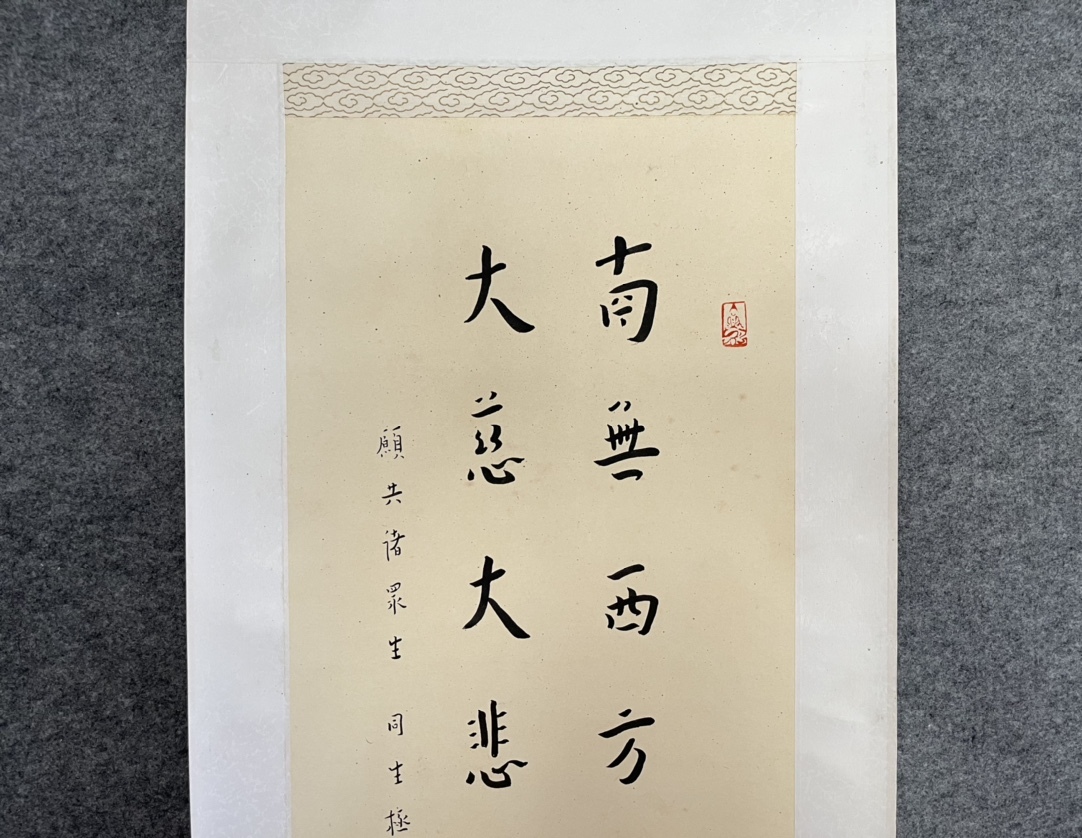 南無西方
大慈大悲
願共諸眾生 同生極